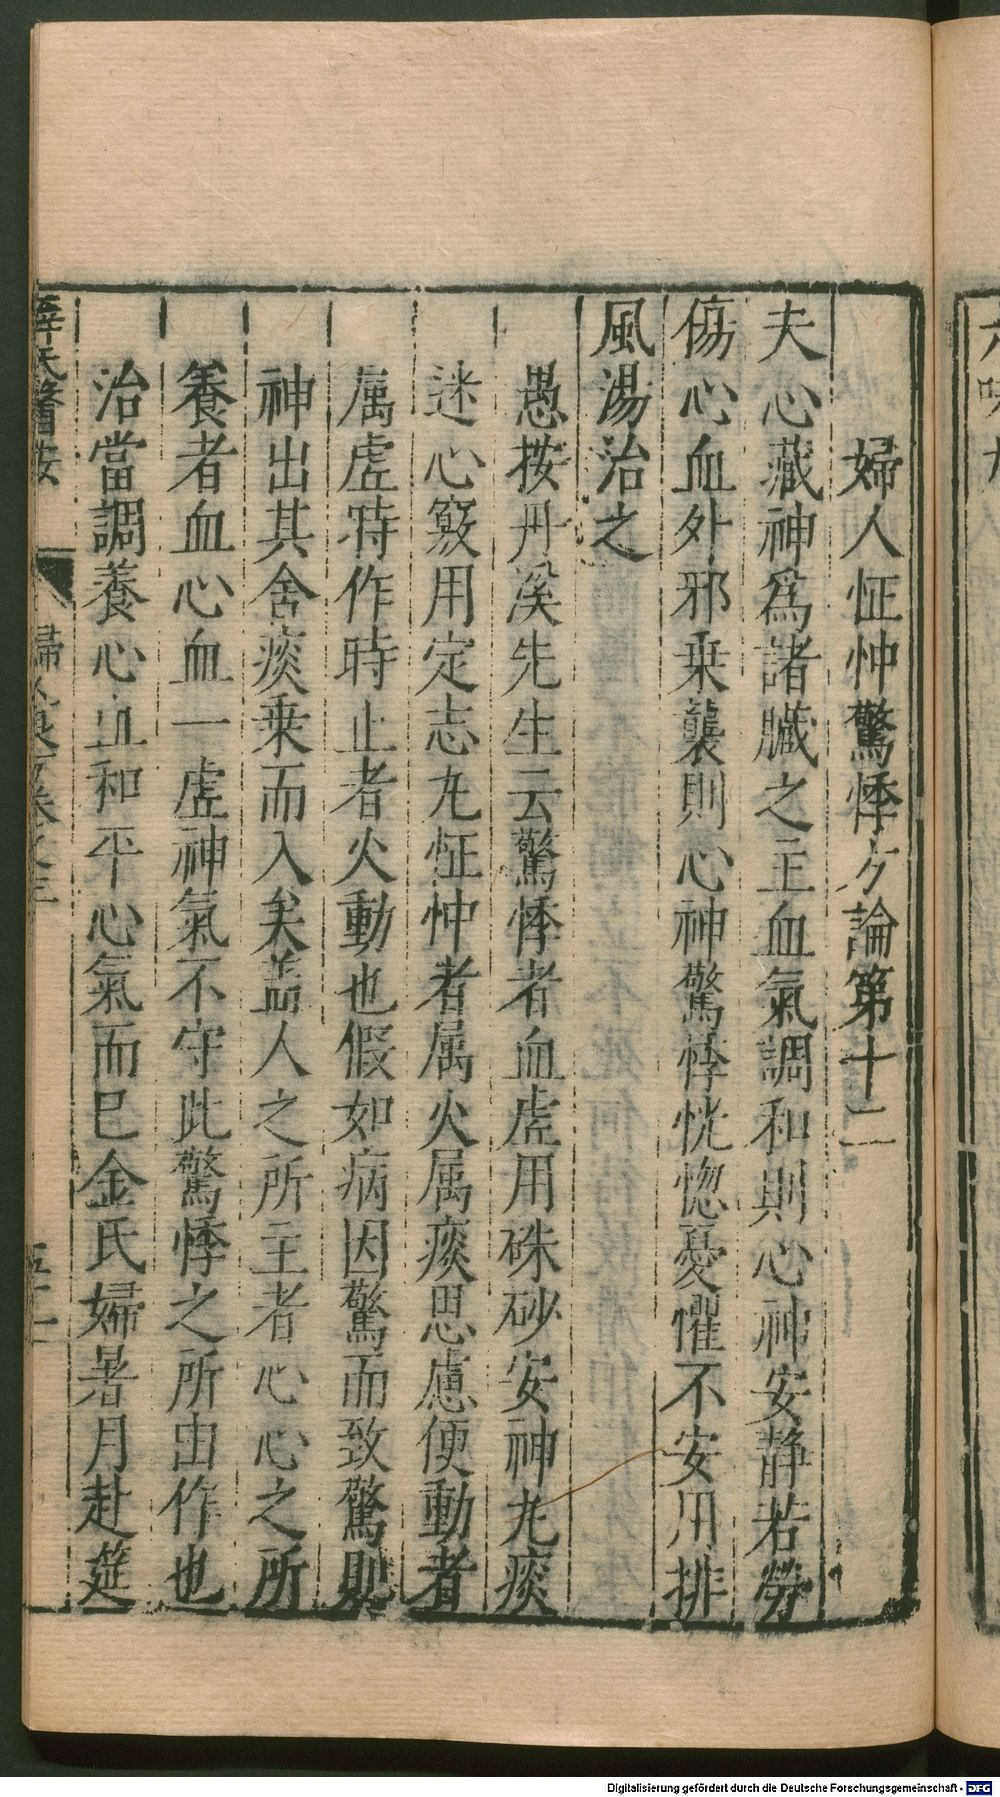 婦人怔忡驚悸方論第十二
夫心藏神爲諸臟之主血氣調和則心神安靜若勞
傷心血外邪乗襲則心神驚悸恍惚憂懼不安用排
風湯治之
愚按丹溪先生云驚悸者血虚用硃砂安神𠀋痰
迷心竅用定志𠀋怔忡者属火属痰思慮便動者
属虚時作時止者火動也假如病因驚而致驚則
神出其舍痰乗而入矣盖人之所主者心心之所
養者血心血一虚神氣不守此驚悸之所由作也
治當調養心血和平心氣而已金氏婦暑月赴筵
薛氏醫按
婦人良方卷之三
五十一
六味
Digitalisierung gefördert durch die Deutsche Forschungsgemeinschaft - DFG